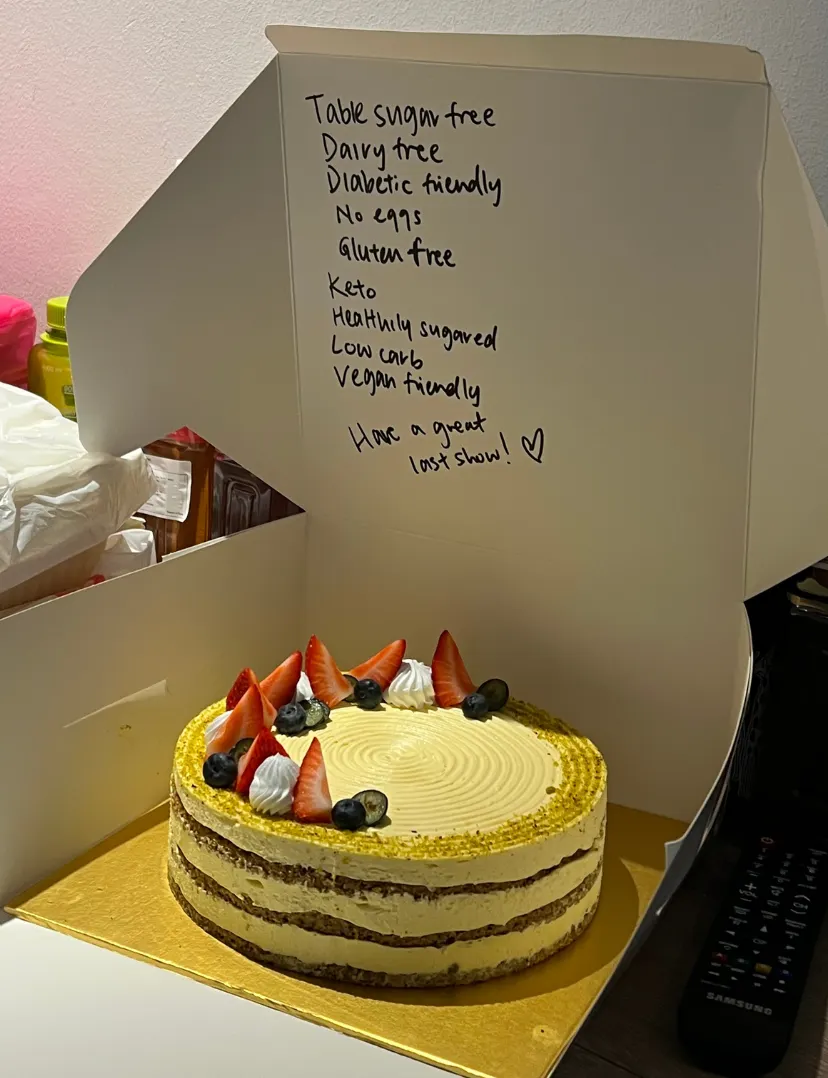 Table sugar free
Dairy free
Diabetic friendly
No eggs
Gluten free
Keto
Healthily sugared
Low carb
Vegan friendly
Have a great
last show! ♡
SAMSUNG